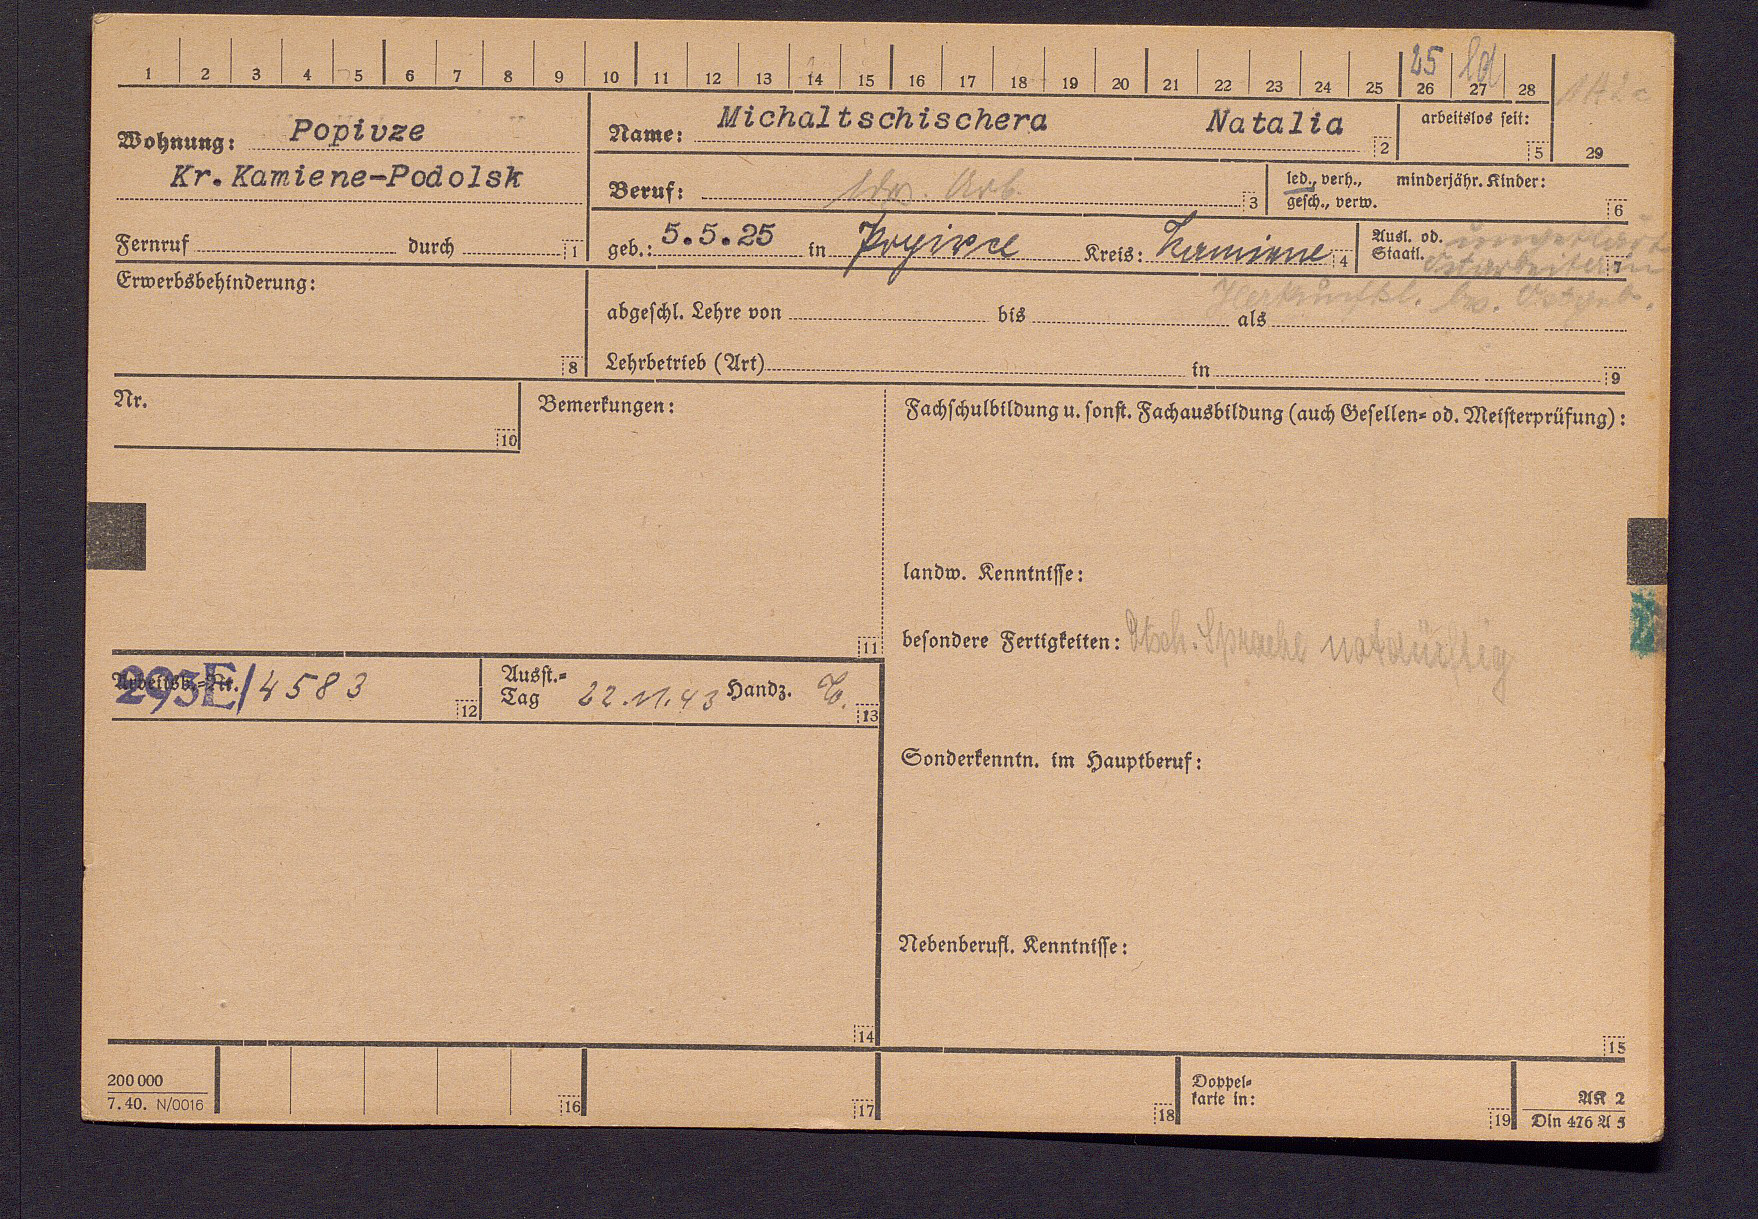 1 2 3 4 5 6 7 8 9 10 11 12 13 14 15 16 17 18 19 20 21 22 23 24 25 26 27 28 29
25 ld
Wohnung: Popivze
Kr. Kamiene-Podolsk
Fernruf durch 1
Name: Michaltschischera Natalia 2
arbeitslos seit: 5
Beruf: ldw. Arb. 3
led., verh., minderjähr. Kinder:
gesch., verw. 6
geb.: 5.5.25 in Kreis: Kamiene 4
Ausl. od.
Staatl. Ostarbeiterin 7
Erwerbsbehinderung: 8
abgeschl. Lehre von bis als
Lehrbetrieb (Art) in 9
Nr. 10
Bemerkungen: 11
Fachschulbildung u. sonst. Fachausbildung (auch Gesellen- od. Meisterprüfung):
landw. Kenntnisse:
besondere Fertigkeiten: Dtsch. Sprache notdürftig
Arbeitsb.-Nr. 293E/4583 12
Ausst.-
Tag 22.11.43 Handz. 13
Sonderkenntn. im Hauptberuf:
Nebenberufl. Kenntnisse:
14 15
200 000
7.40. N/0016
16 17 18
Doppel-
karte in: 19
AK 2
Din 476 A 5